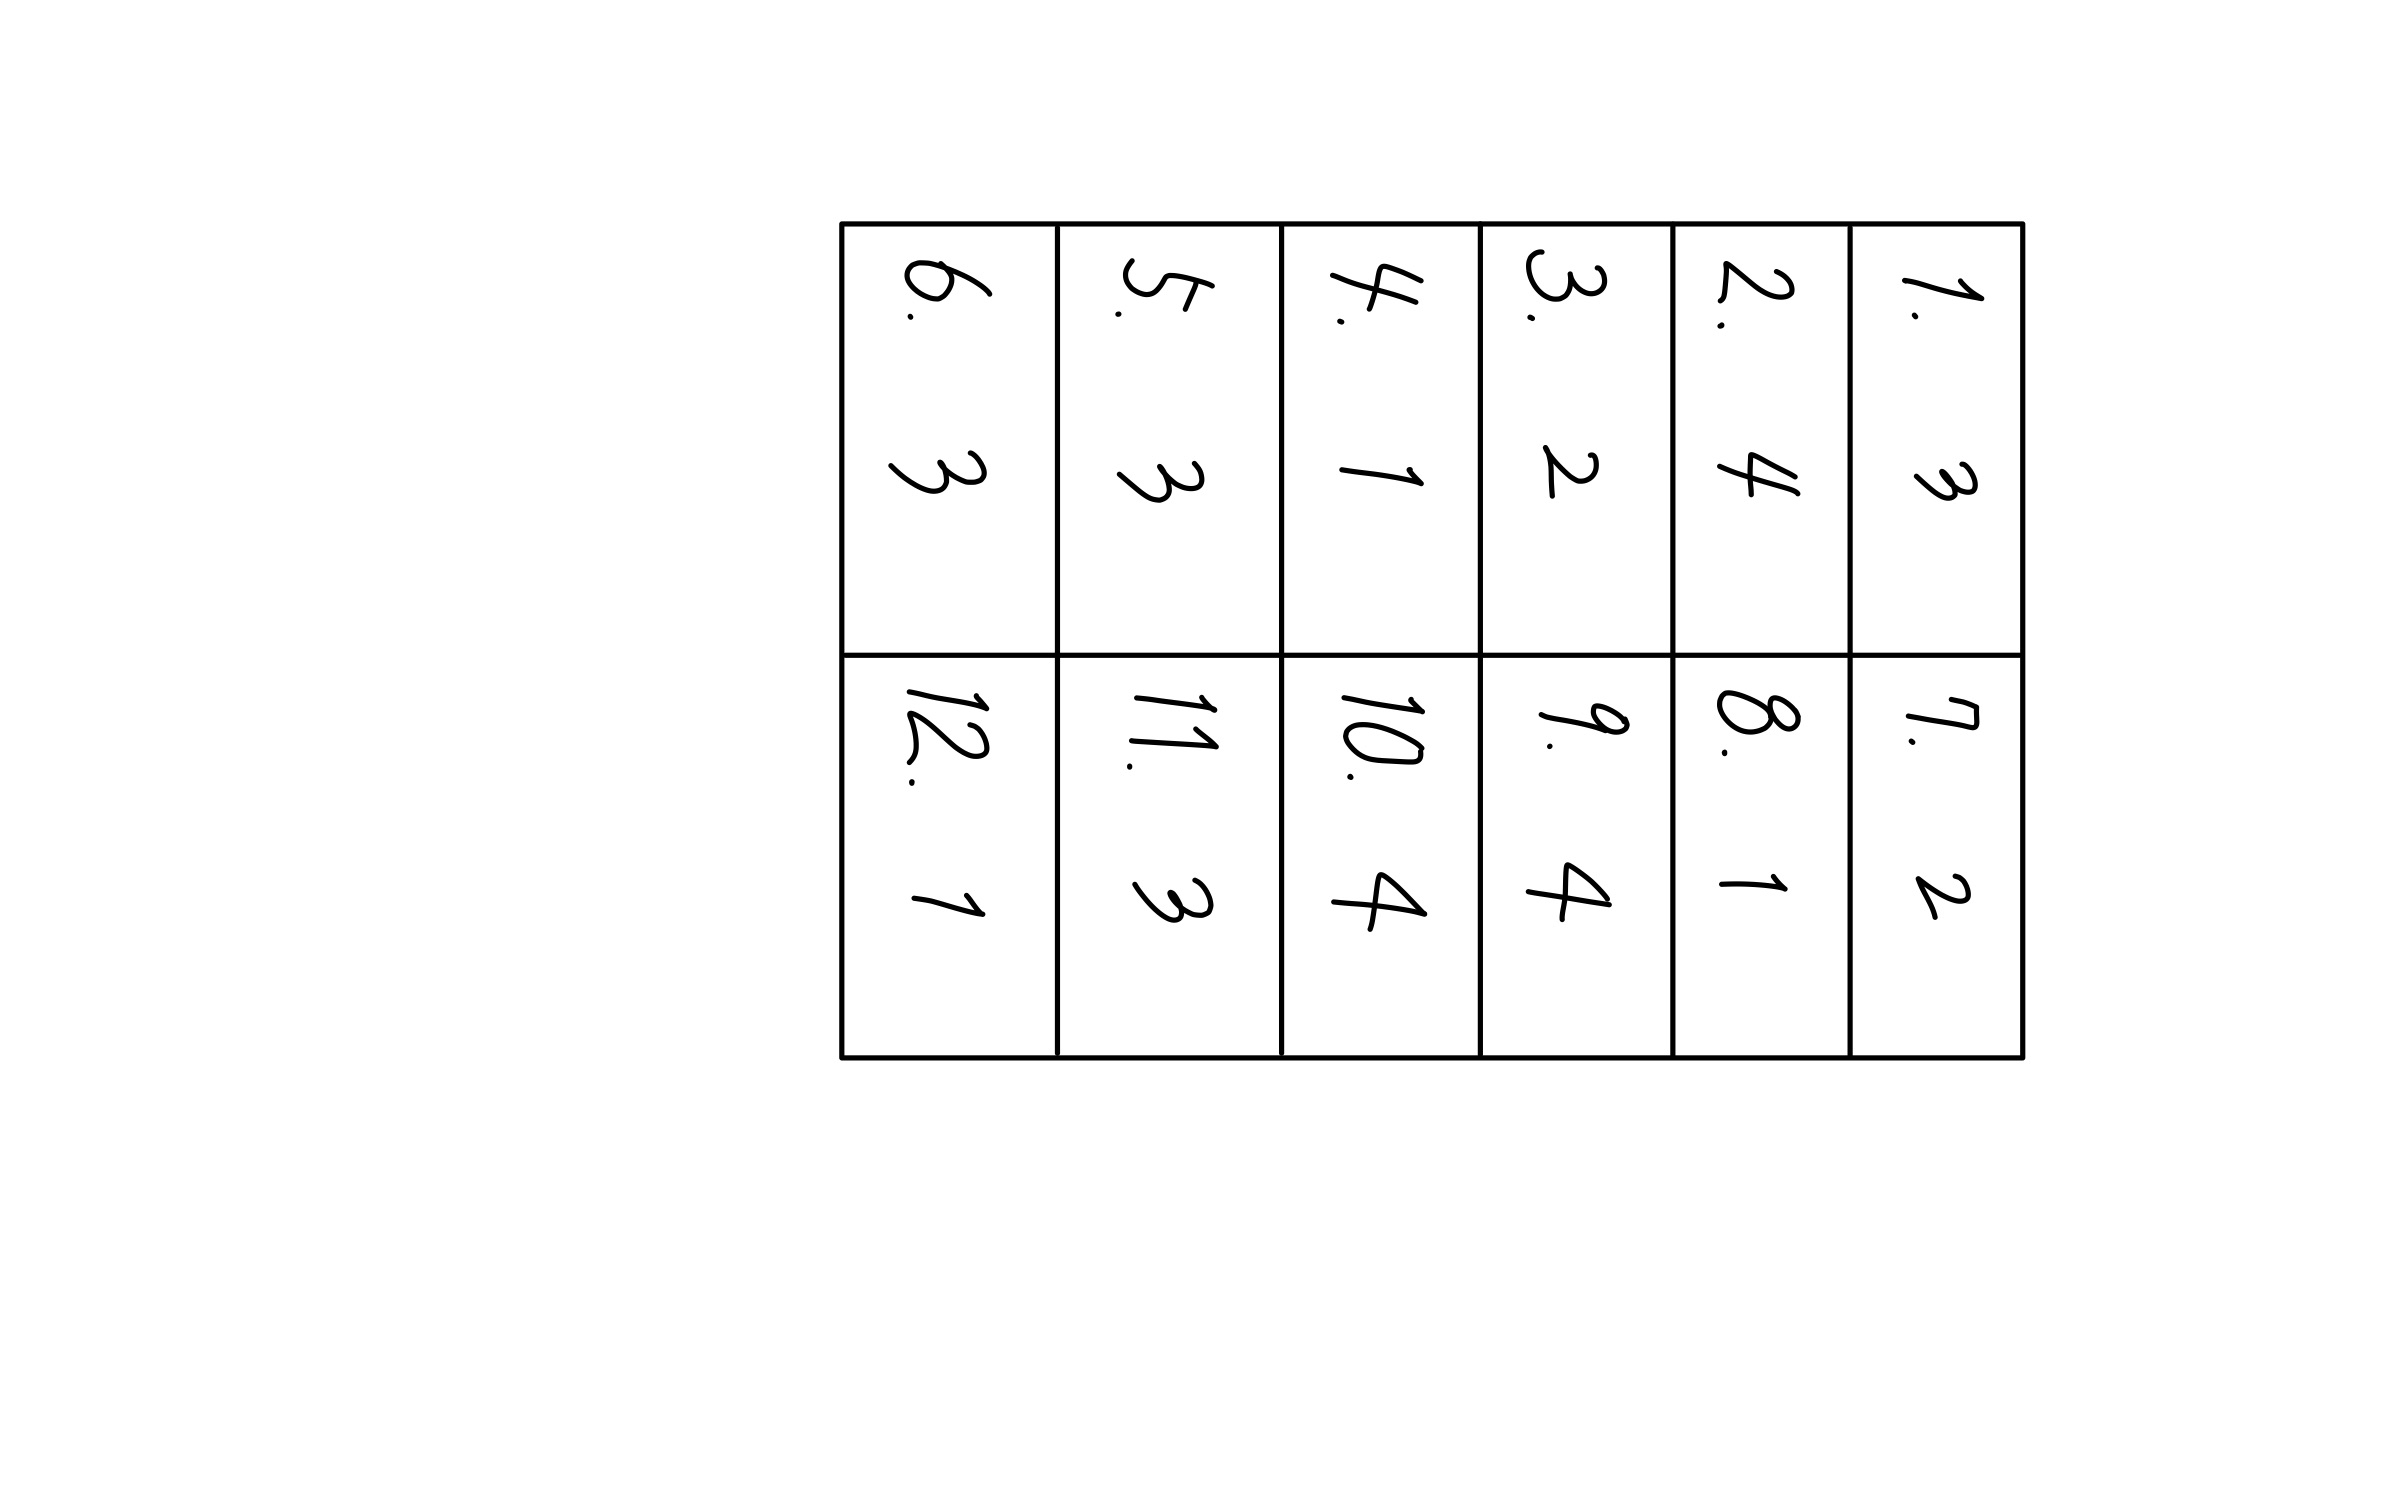 1. 3 7. 2
2. 4 8. 1
3. 2 9. 4
4. 1 10. 4
5. 3 11. 3
6. 3 12. 1